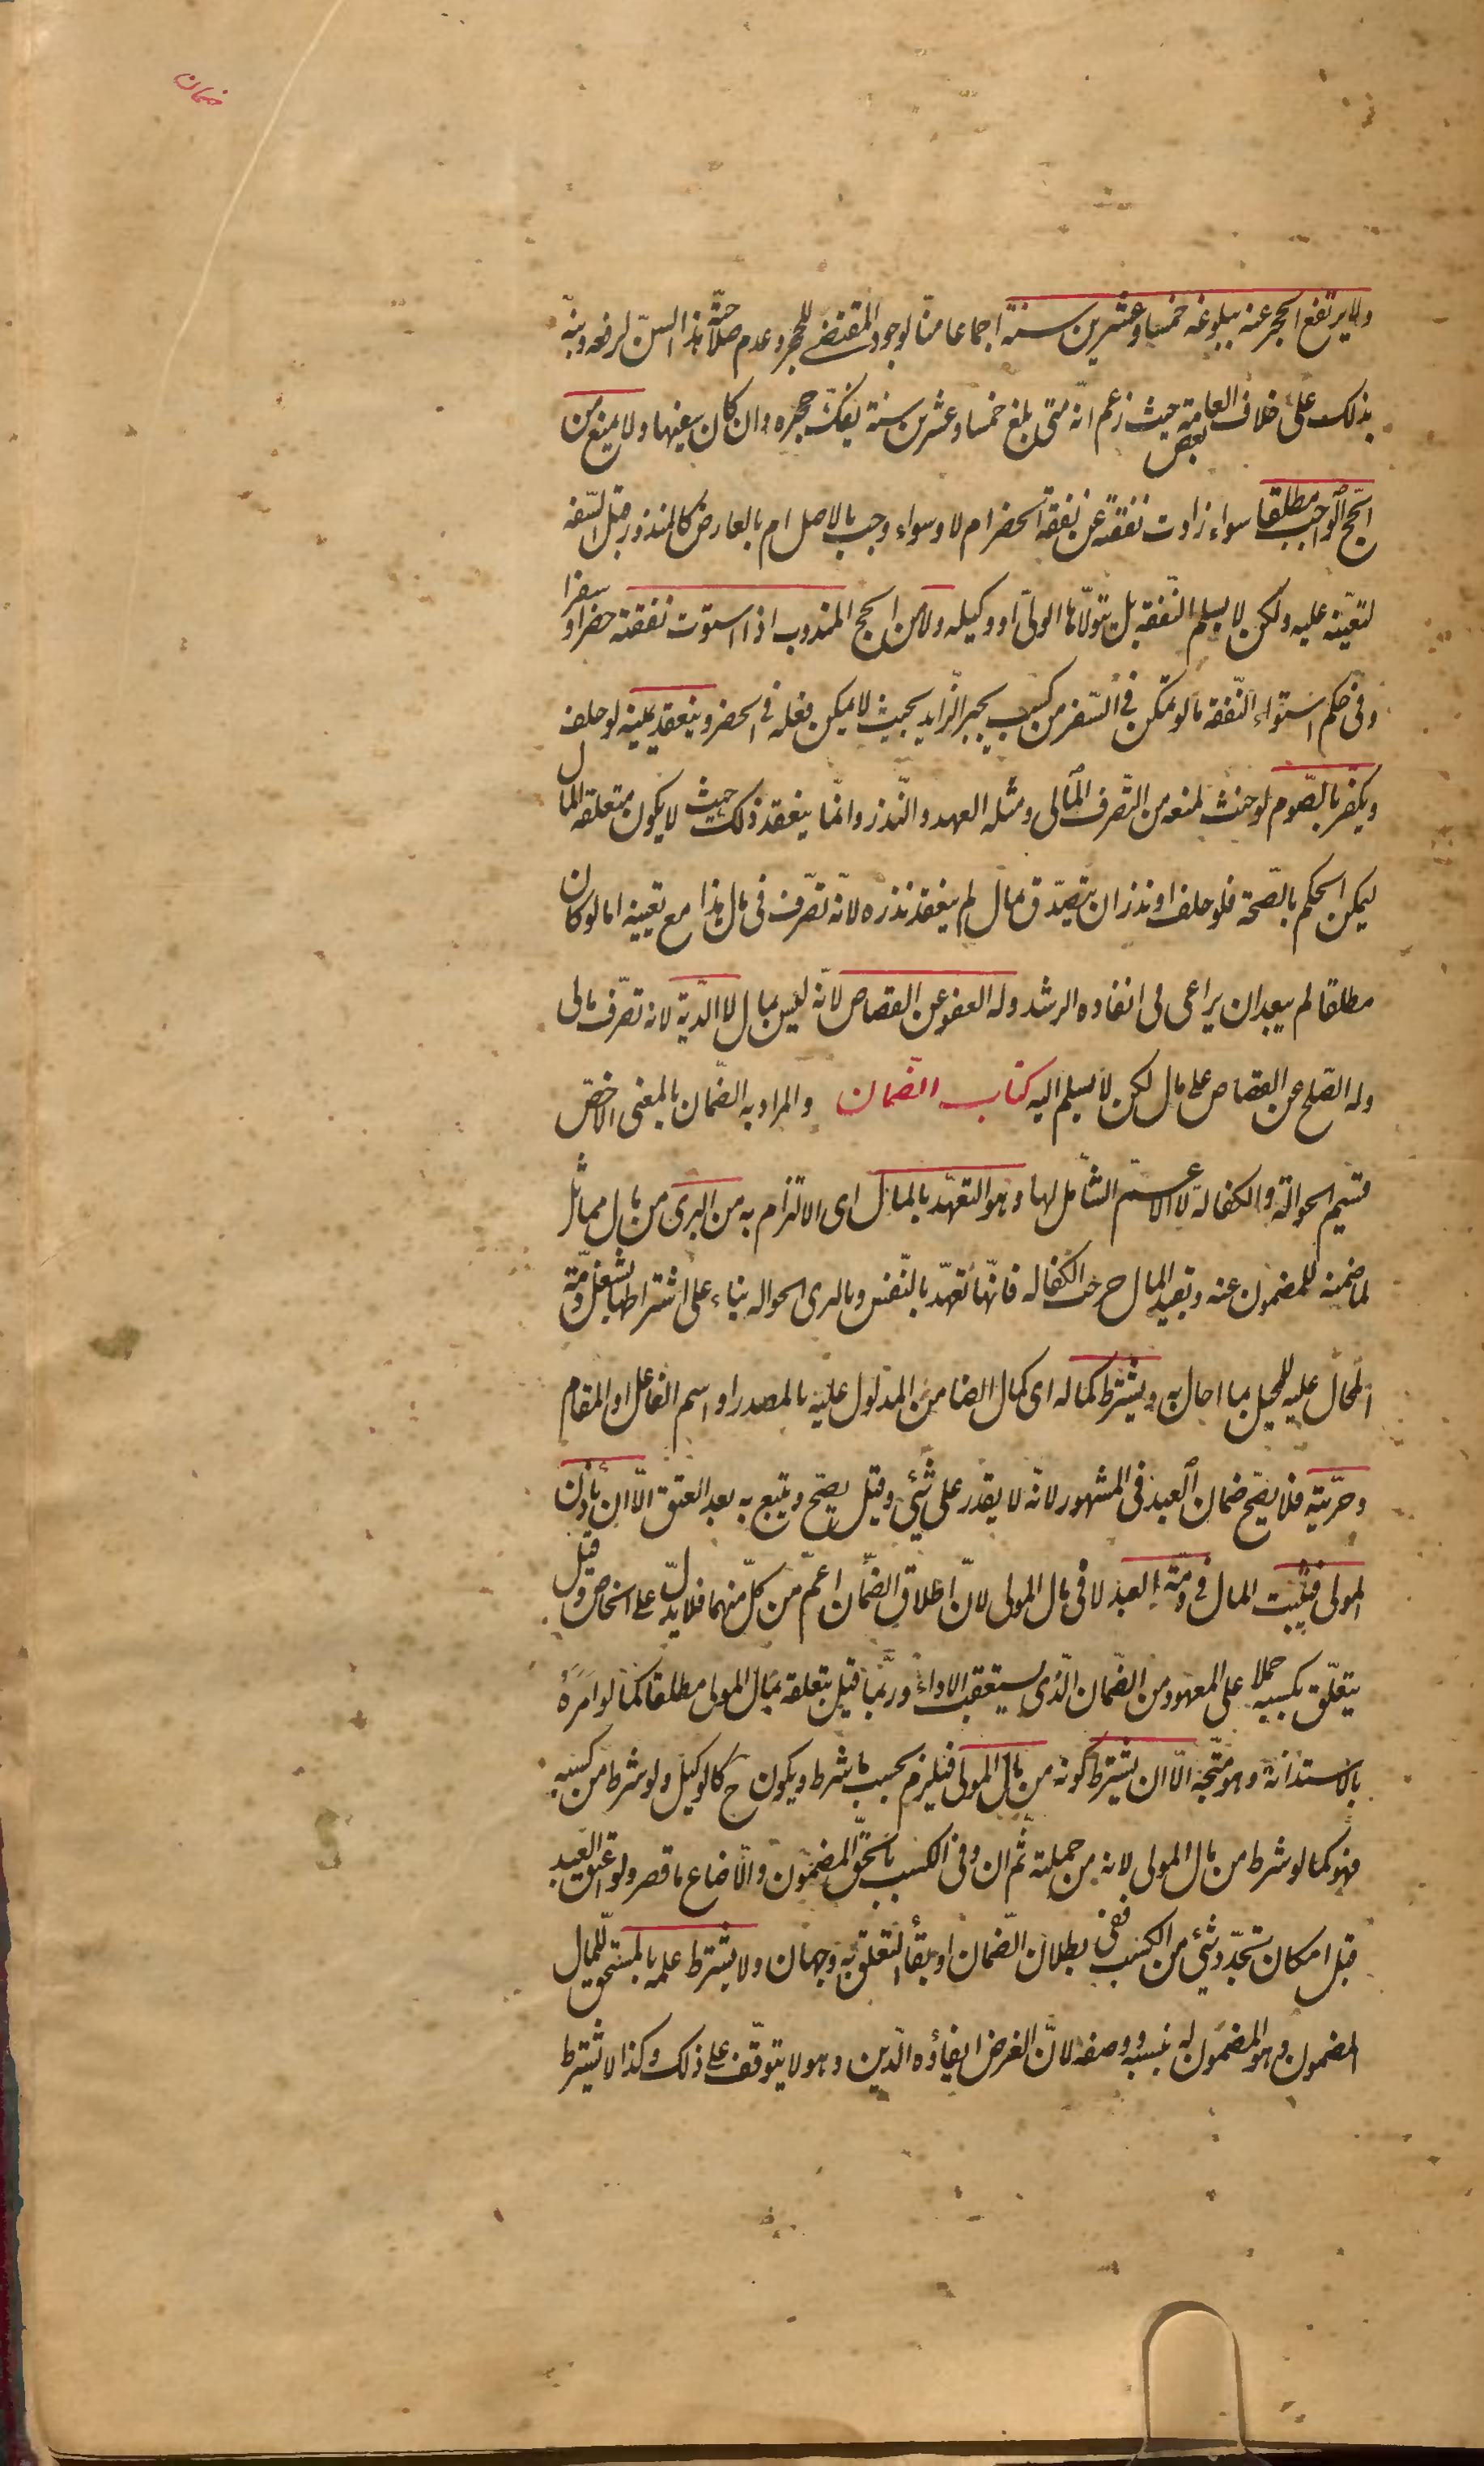 ضمان
ولا يرتفع الحجر عنه ببلوغه خمسا وعشرين سنة اجماعا منّا لوجود المقتضي للحجر وعدم صلاحيّة هذا السنّ لرفعه ونبّه
بذلك على خلاف بعض العامة حيث زعم انّه متى بلغ خمسا وعشرين سنة يفكّ حجره وان كان سفيها ولا يمنع من
الحجّ الواجب مطلقا سواء زادت نفقته عن نفقة الحضر ام لا وسواء وجب بالاصل ام بالعارض كالمنذور قبل السّفه
لتعيّنه عليه ولكن لا يسلم النّفقة بل يتولّاها الولىّ او وكيله ولا من الحج المندوب اذا استوت نفقته حضرا وسفرا
وفى حكم استواء النّفقة ما لو تمكن فى السّفر من كسب يجبر الزّايد بحيث لا يمكن فعله فى الحضر وينعقد يمينه لو حلف
ويكفر بالصّوم لو حنث لمنعه من التّصرف المالى ومثله العهد والنّذر وانّما ينعقد ذلك حيث لا يكون متعلقه المال
ليمكن الحكم بالصّحة فلو حلف او نذر ان يتصدّق بمال لم ينعقد نذره لانّه تصّرف فى مال هذا مع تعيينه اما لو كان
مطلقا لم يبعد ان يراعى فى انفاده الرشد وله العفو عن القصاص لانّه ليس بمال لا الدّية لانه تصّرف مالى
وله الصّلح عن القصاص على مال لكن لا يسلم اليه كتاب الضمان والمراد به الضّمان بالمعنى الاخصّ
قسيم الحوالة والكفالة لا الاعمّ الشّامل لها وهو التعهّد بالمال اى الالتزام به من البرىء من مال مماثل
لما ضمنه للمضمون عنه وبقيد المال خرجت الكفاله فانّها تعهّد بالنّفس وبالبرى الحواله بناء على اشتراطها بشغل ذمّة
المحال عليه للمحيل بما احال به ويشترط كماله اى كمال الضامن المدلول عليه بالمصدر او اسم الفاعل او المقام
وحرّيته فلا يصّح ضمان العبد فى المشهور لانّه لا يقدر على شئ وقيل يصّح ويتبع به بعد العتق الّا ان ياذن
المولى فيثبت المال فى ذمّة العبد لا فى مال المولى لانّ اطلاق الضّمان اعمّ من كلّ منهما فلا يدلّ على الخاص وقيل
يتعلّق بكسبه حملا على المعهود من الضّمان الّذى يستعقب الاداء وربّما قيل بتعلقه بمال المولى مطلقا كما لو امره
بالاستدانة وهو متّجه الّا ان يشترط كونه من مال المولى فيلزم بحسب ما شرط ويكون ح كالوكيل ولو شرط من كسبه
فهو كما لو شرط من مال المولى لانه من جملته ثم ان وفى الكسب بالحقّ المضمون والّا ضاع ما قصر ولو اعتق العبد
قبل امكان تجدّد شئ من الكسب ففى بطلان الضّمان او بقاء التعلق به وجهان ولا يشترط علمه بالمستحق للمال
المضمون وهو المضمون له بنسبه ووصفه لانّ الغرض ايفاؤه الدّين وهو لا يتوقّف على ذلك وكذا لا يشترط